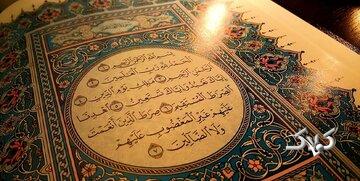 بِسْمِ اللَّهِ الرَّحْمَٰنِ الرَّحِيمِ
الْحَمْدُ لِلَّهِ رَبِّ الْعَالَمِينَ
الرَّحْمَٰنِ الرَّحِيمِ مَالِكِ يَوْمِ الدِّينِ
إِيَّاكَ نَعْبُدُ وَإِيَّاكَ نَسْتَعِينُ اهْدِنَا
الصِّرَاطَ الْمُسْتَقِيمَ صِرَاطَ الَّذِينَ أَنْعَمْتَ
عَلَيْهِمْ غَيْرِ الْمَغْضُوبِ عَلَيْهِمْ
وَلَا الضَّالِّينَ ٧